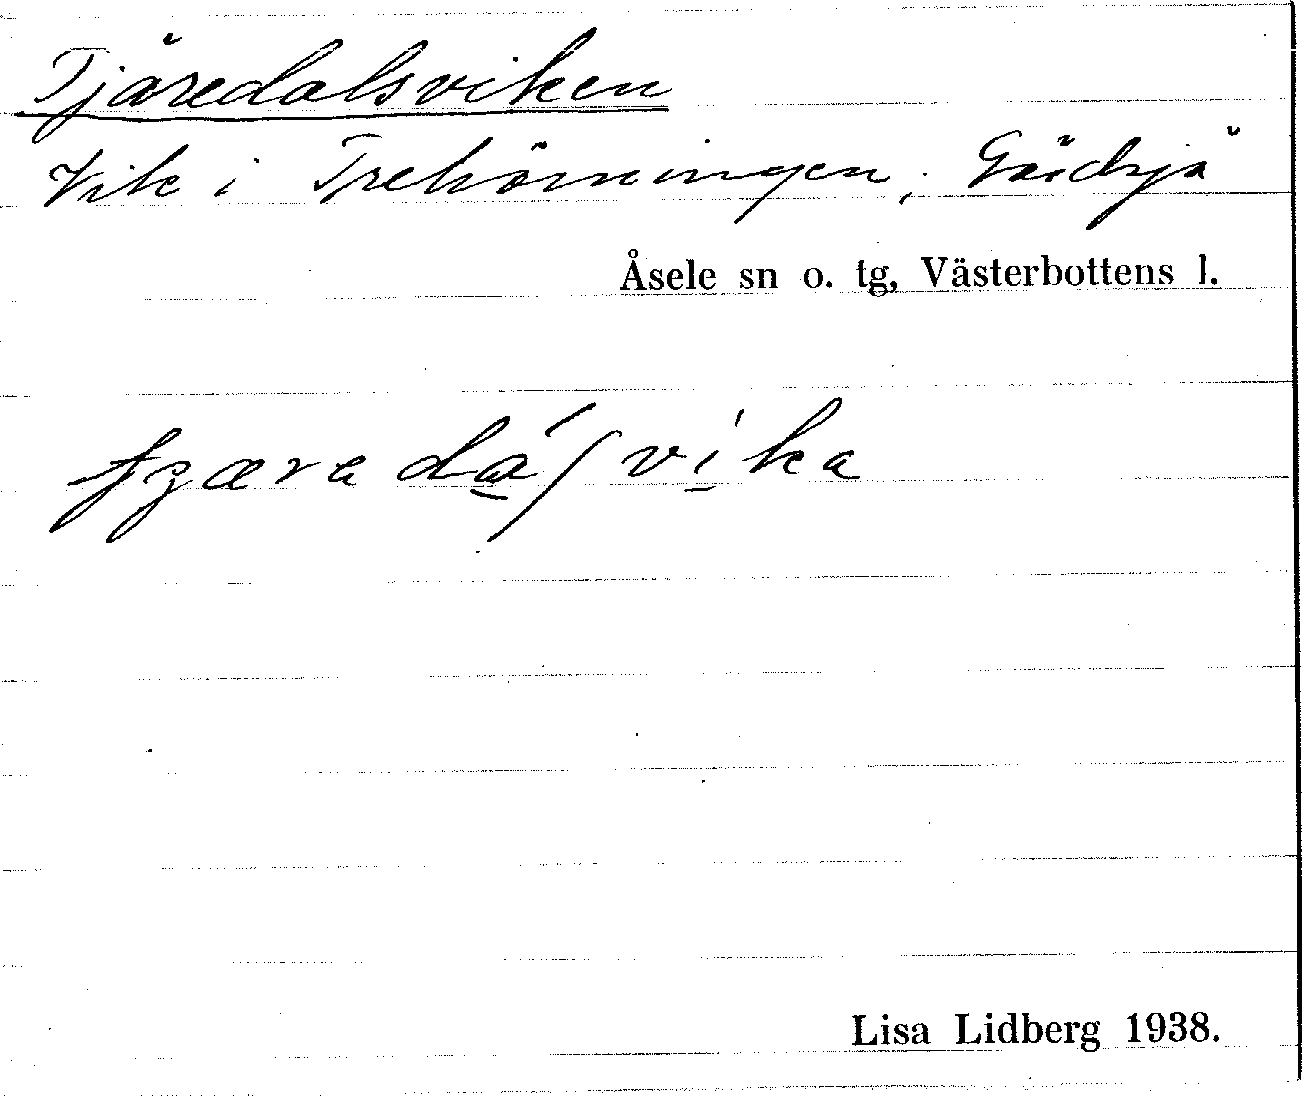 Tjäredalsviken
Vik i Trehörningen, Gärdsjö
Åsele sn o. tg, Västerbottens l.
Lisa Lidberg 1938.